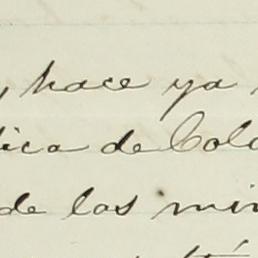 , hace ya
lica de Colo
de las min